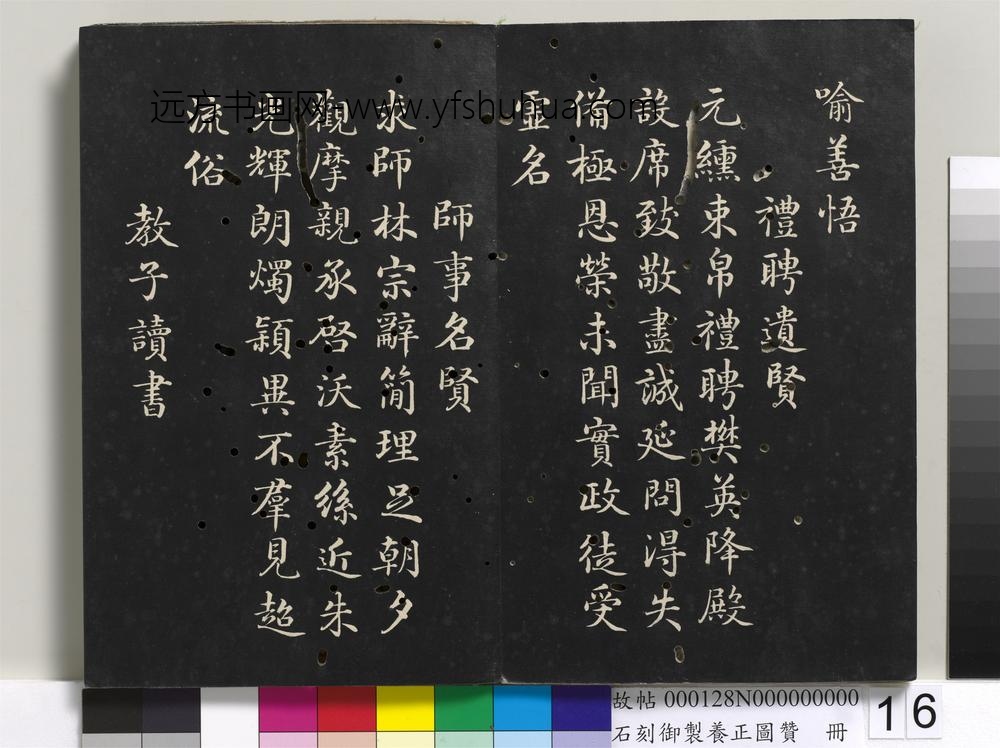 喻善悟
禮聘遺賢
元纁束帛禮聘樊英降殿
設席致敬盡誠延問淂失
僃極恩榮未聞實政徒受
虛名
師事名賢
求師林宗辭簡理足朝夕
觀摩親承啓沃素絲近朱
元輝朗燭穎異不羣見超
流俗
教子讀書
远方书画网-www.yfshuhua.com
故帖 000128N000000000
石刻御製養正圖贊 冊
16